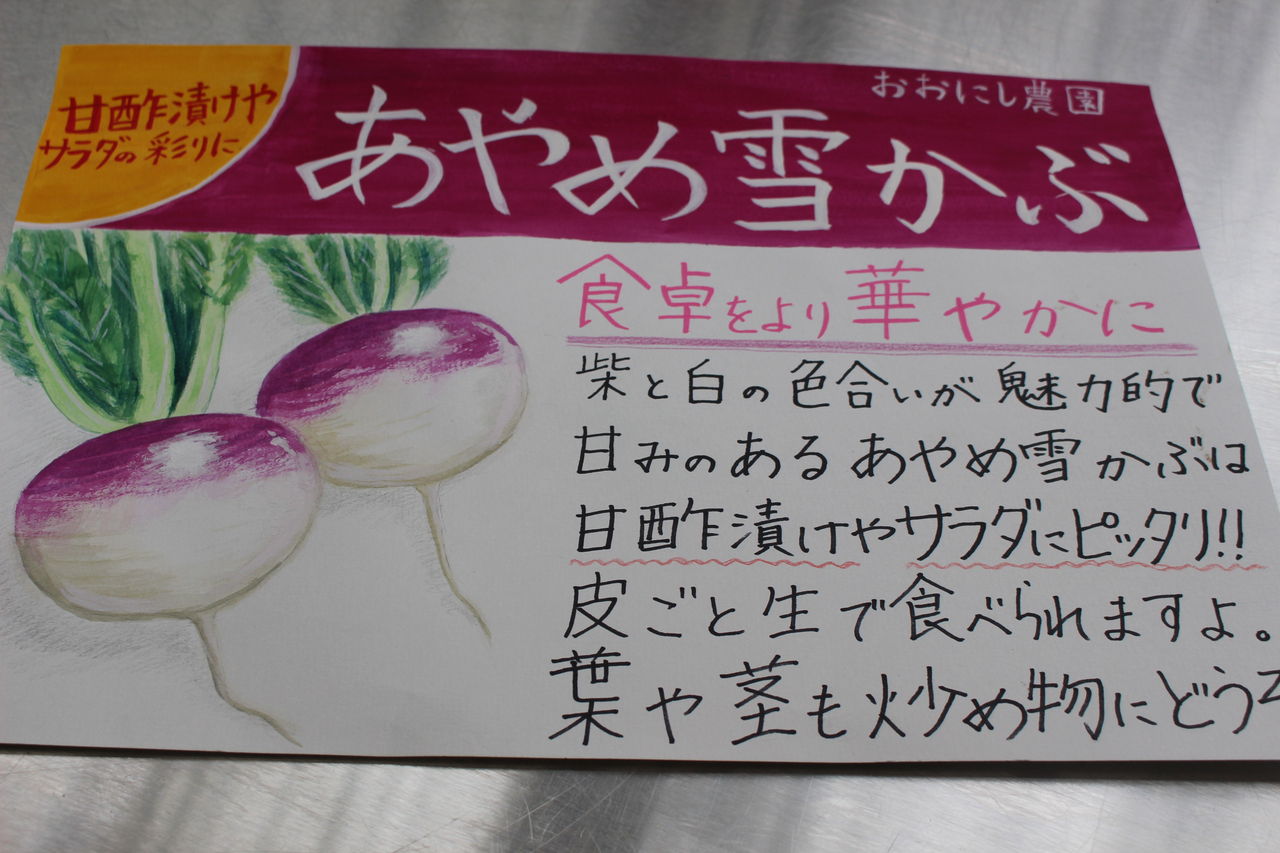 甘酢漬けや
サラダの彩りに
おおにし農園
あやめ雪かぶ
食卓をより華やかに
柴と白の色合いが魅力的で
甘みのあるあやめ雪かぶは
甘酢漬けやサラダにピッタリ!!
皮ごと生で食べられますよ。
葉や茎も炒め物にどうぞ